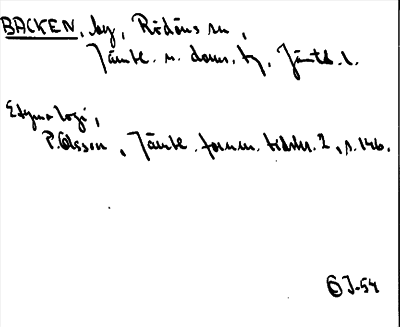 BACKEN, by, Rödöns sn,
Jämtl. n. doms. tg, Jämtl. l.
Etymologi,
P. Olsson, Jämtl. fornm. tidskr. 2, s. 146.
ÖJ-54